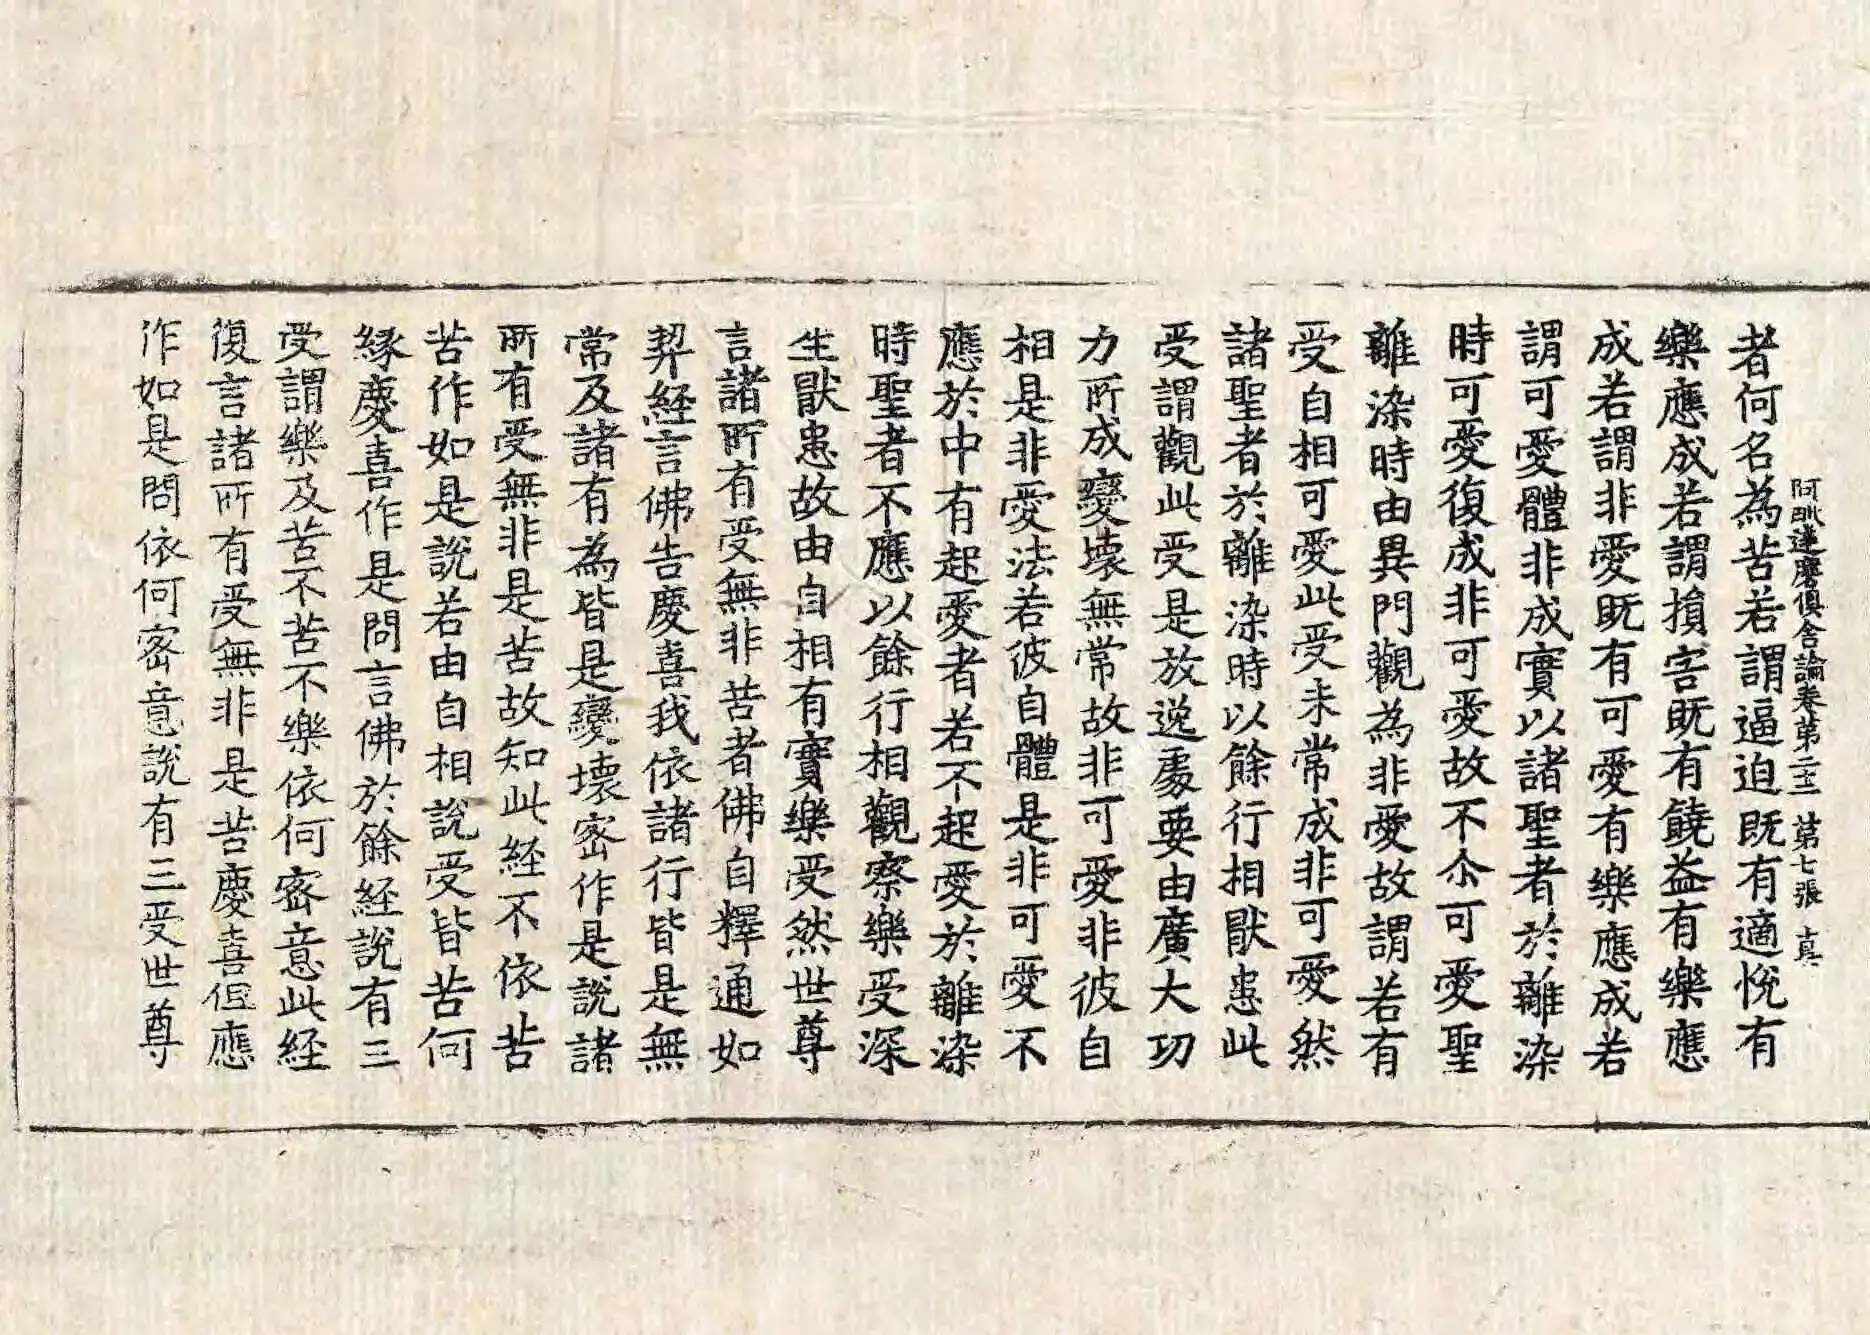 阿毗達磨俱舍論卷第二十二 第七張 真
者何名為苦若謂逼迫既有適悅有
樂應成若謂損害既有饒益有樂應
成若謂非愛既有可愛有樂應成若
謂可愛體非成實以諸聖者於離染
時可愛復成非可愛故不尒可愛聖
離染時由異門觀為非愛故謂若有
受自相可愛此受未常成非可愛然
諸聖者於離染時以餘行相猒患此
受謂觀此受是放逸處要由廣大功
力所成變壞無常故非可愛非彼自
相是非愛法若彼自體是非可愛不
應於中有起愛者若不起愛於離染
時聖者不應以餘行相觀察樂受深
生猒患故由自相有實樂受然世尊
言諸所有受無非苦者佛自釋通如
契經言佛告慶喜我依諸行皆是無
常及諸有為皆是變壞密作是說諸
所有受無非是苦故知此經不依苦
苦作如是說若由自相說受皆苦何
緣慶喜作是問言佛於餘經說有三
受謂樂及苦不苦不樂依何密意此經
復言諸所有受無非是苦慶喜但應
作如是問依何密意說有三受世尊